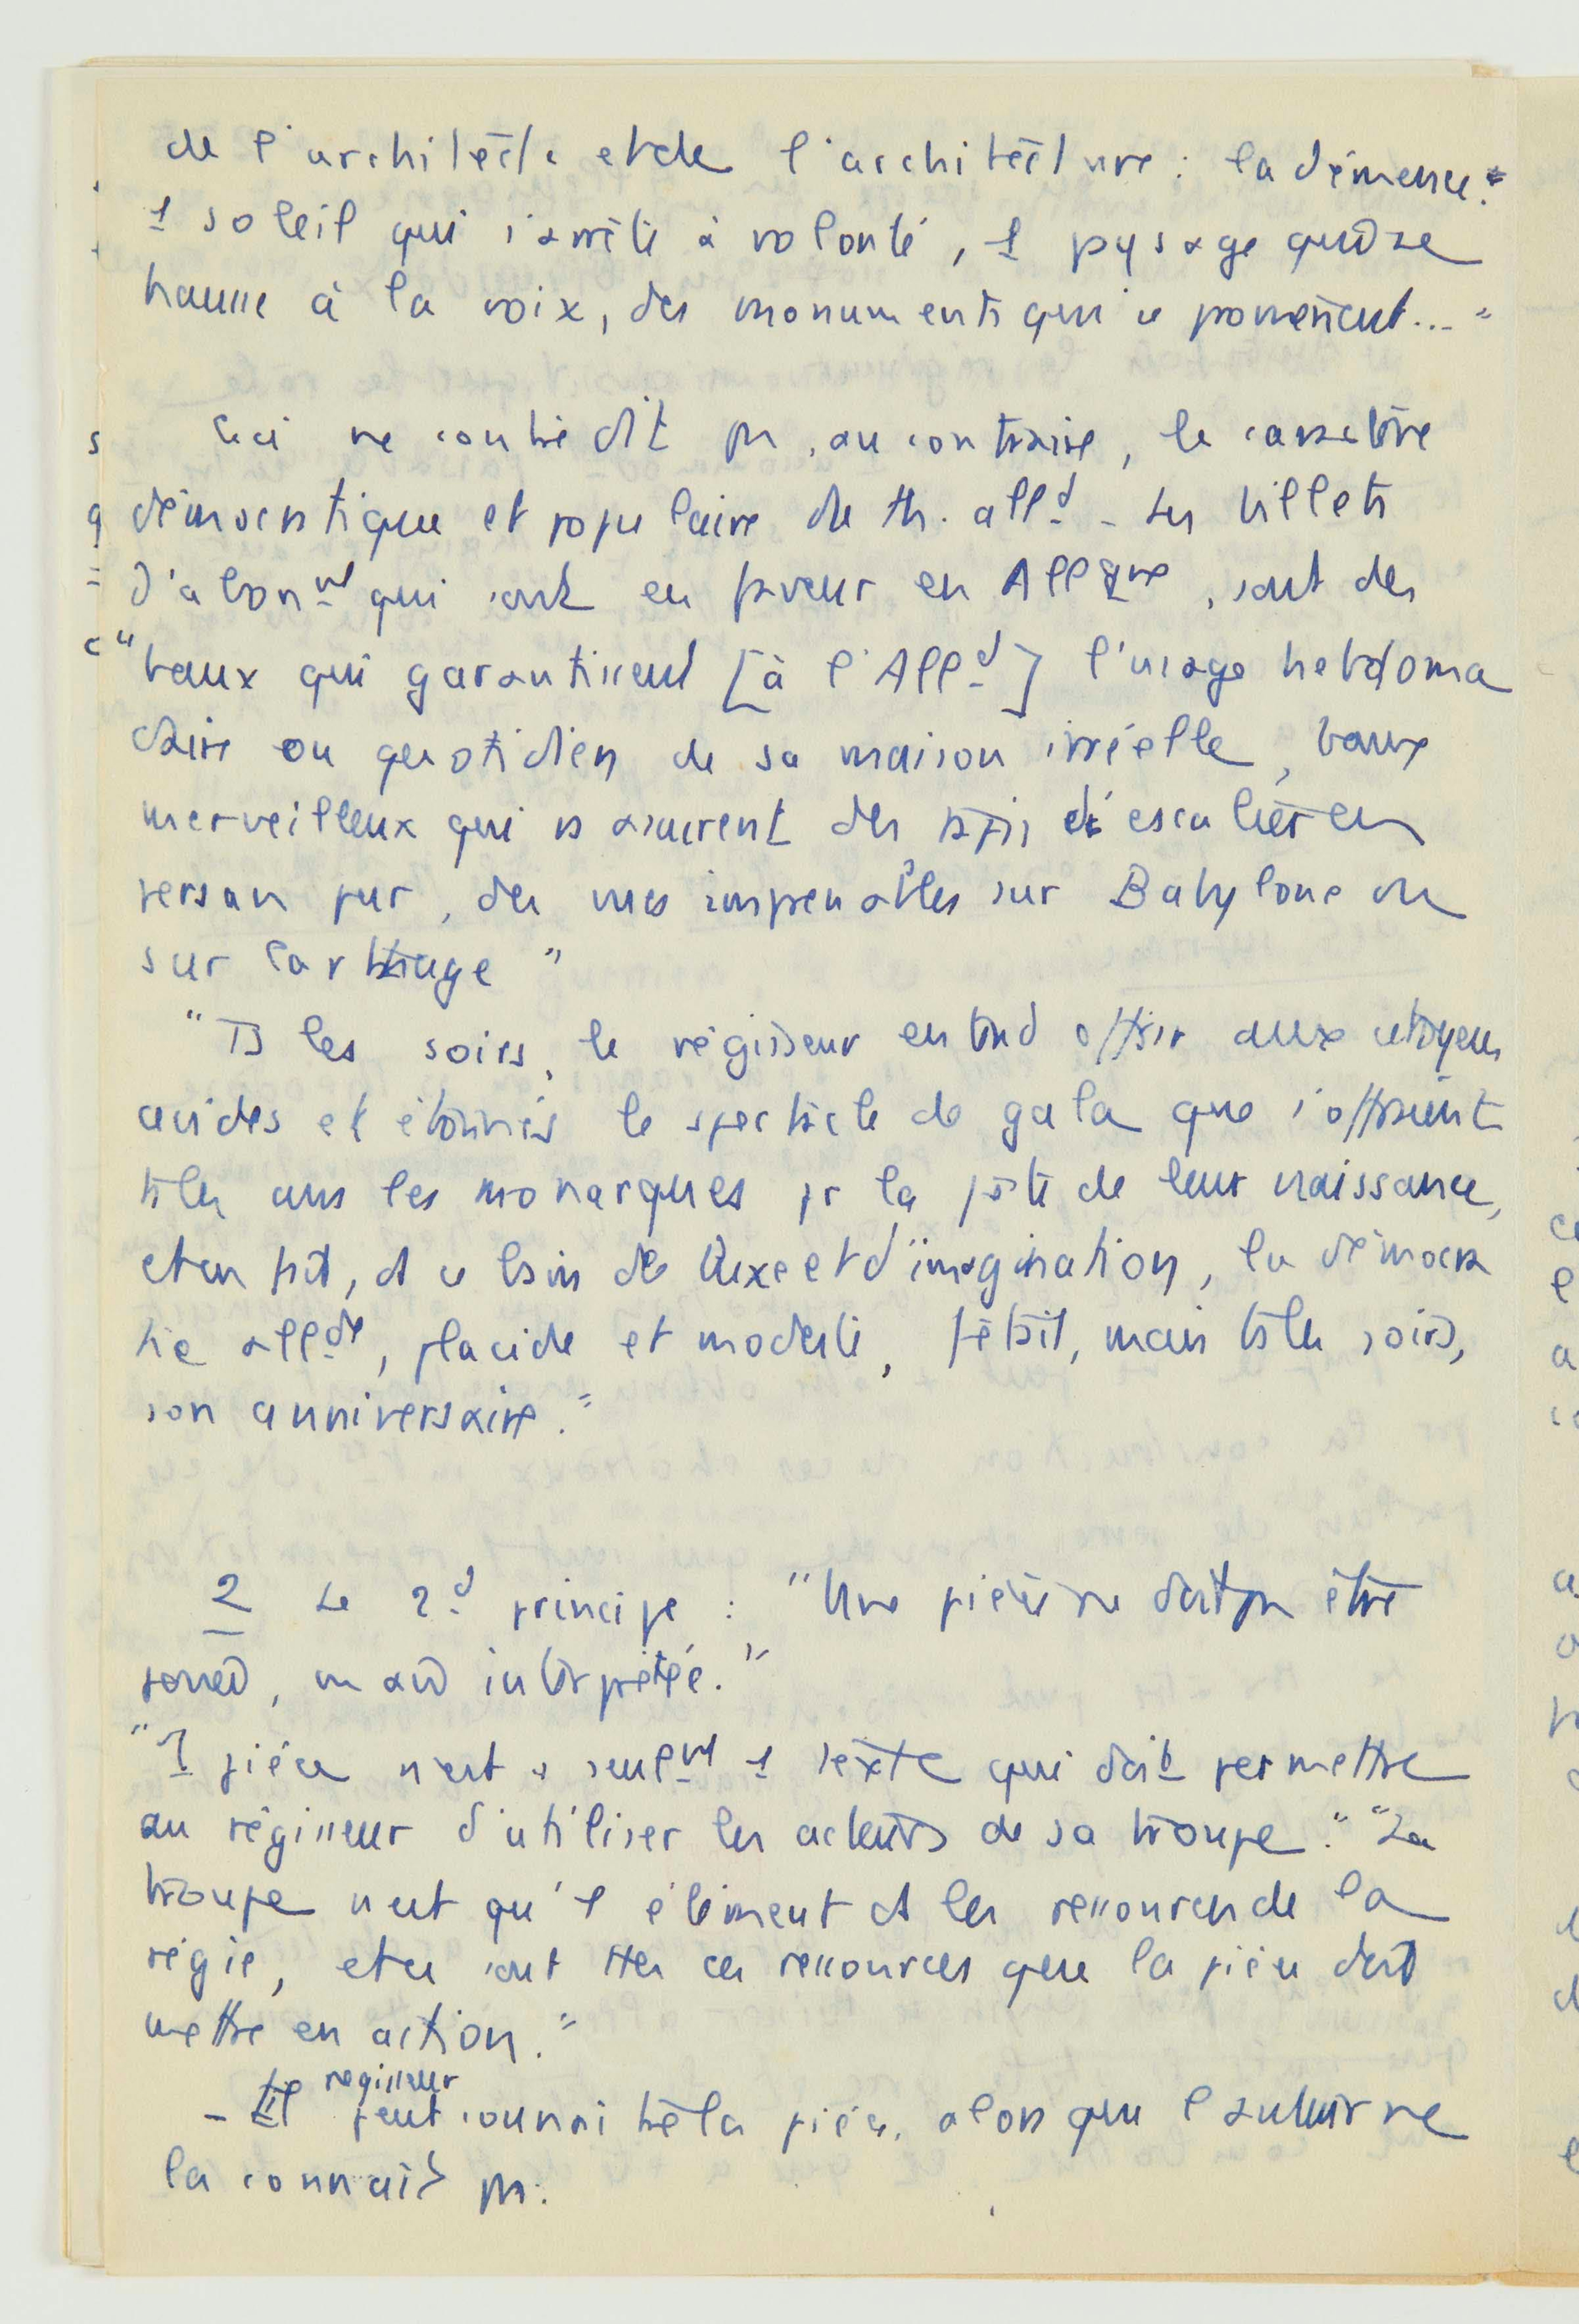 de l'architecte et de l'architecture : la démence.
1 soleil qui s'arrête à volonté, 1 pysage qui se
hausse à la voix, des monuments qui se promènent... "
Ceci ne contredit pas, au contraire, le caractère
démocratique et populaire du th. alld - Les billets
d'abonnt qui sont en faveur en Allgne, sont des
"baux qui garantissent [à l'Alld] l'usage hebdoma
daire ou quotidien de sa maison irréelle, baux
merveilleux qui ns assurent des tapis d'escalier en
persan pur, des vues imprenables sur Babylone ou
sur Carthage "
"Ts les soirs, le régisseur entend offrir aux citoyens
avides et étonnés le spectacle de gala que s'offraient
ts les ans les monarques pr la fête de leur naissance,
et en fait, ds ce bain de luxe et d'imagination, la démocra
tie allde, placide et modeste, fêtait, mais ts les soirs,
son anniversaire."
2 Le 2d principe : "Une pièce ne doit pas être
jouée, mais interprétée."
"1 pièce n'est seulnt 1 texte qui doit permettre
au régisseur d'utiliser les acteurs de sa troupe." "La
troupe n'est qu'1 élément ds les ressources de la
régie, et ce sont ttes ces ressources que la pièce doit
mettre en action."
régisseur
- Il peut connaître la pièce, alors que l'auteur ne
la connaît pas.